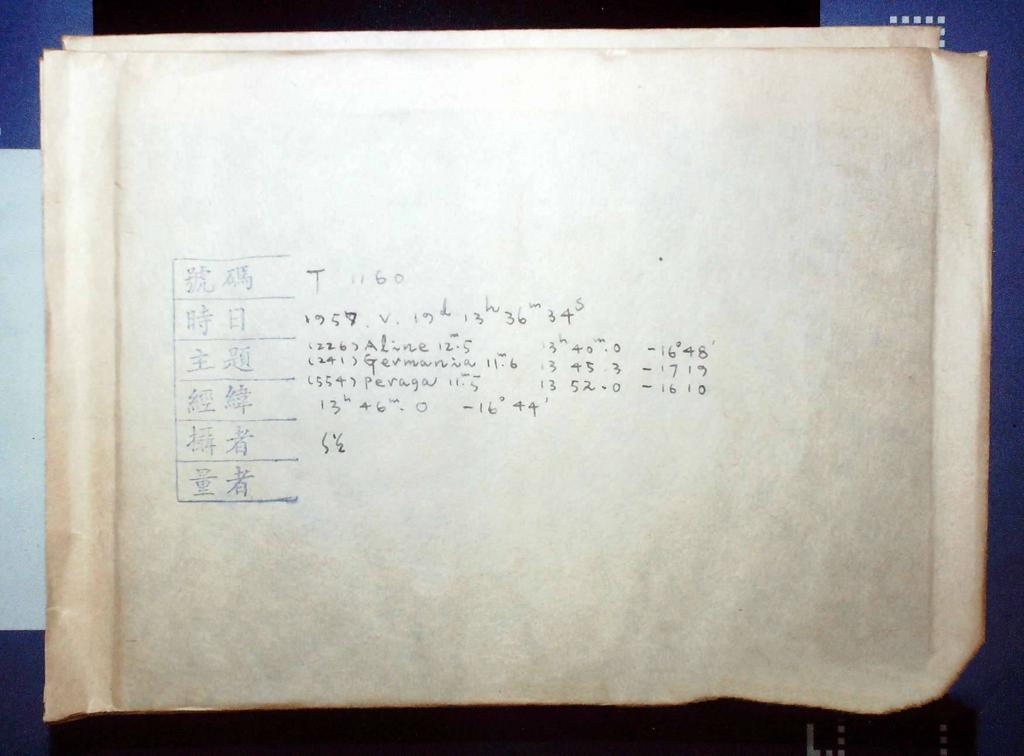 號碼 T 1160
時日 1957. V. 19ᵈ 13ʰ 36ᵐ 34ˢ
主題 (226) Aline 12ᵐ.5 13ʰ 40ᵐ.0 -16°48'
(241) Germania 11ᵐ.6 13 45.3 -17 19
(554) Peraga 11ᵐ.5 13 52.0 -16 10
經緯 13ʰ 46ᵐ.0 -16°44'
攝者
量者